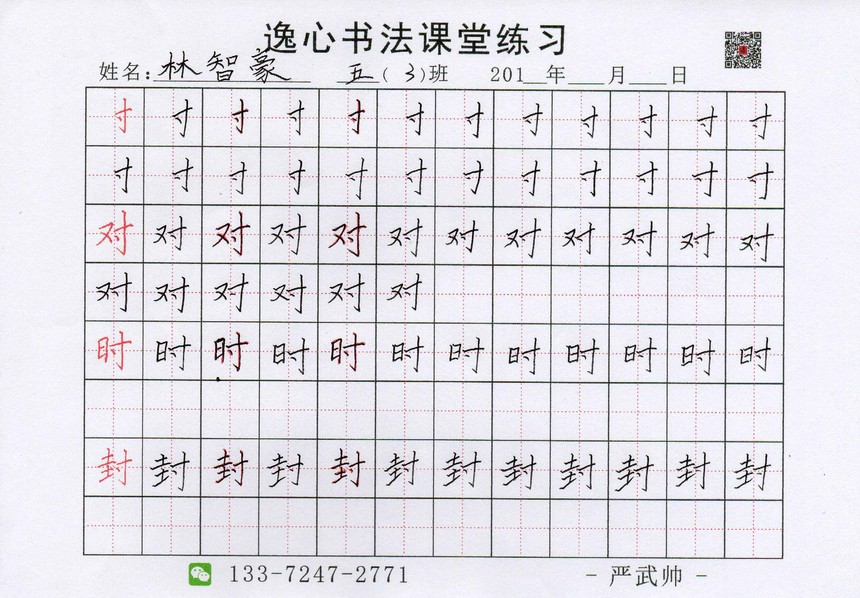 逸心书法课堂练习
姓名:林智豪 五(3)班 201__年___月___日
寸寸寸寸寸寸寸寸寸寸寸寸
寸寸寸寸寸寸寸寸寸寸寸寸
对对对对对对对对对对对对
对对对对对对
时时时时时时时时时时时时
封封封封封封封封封封封封
133-7247-2771 - 严武帅 -